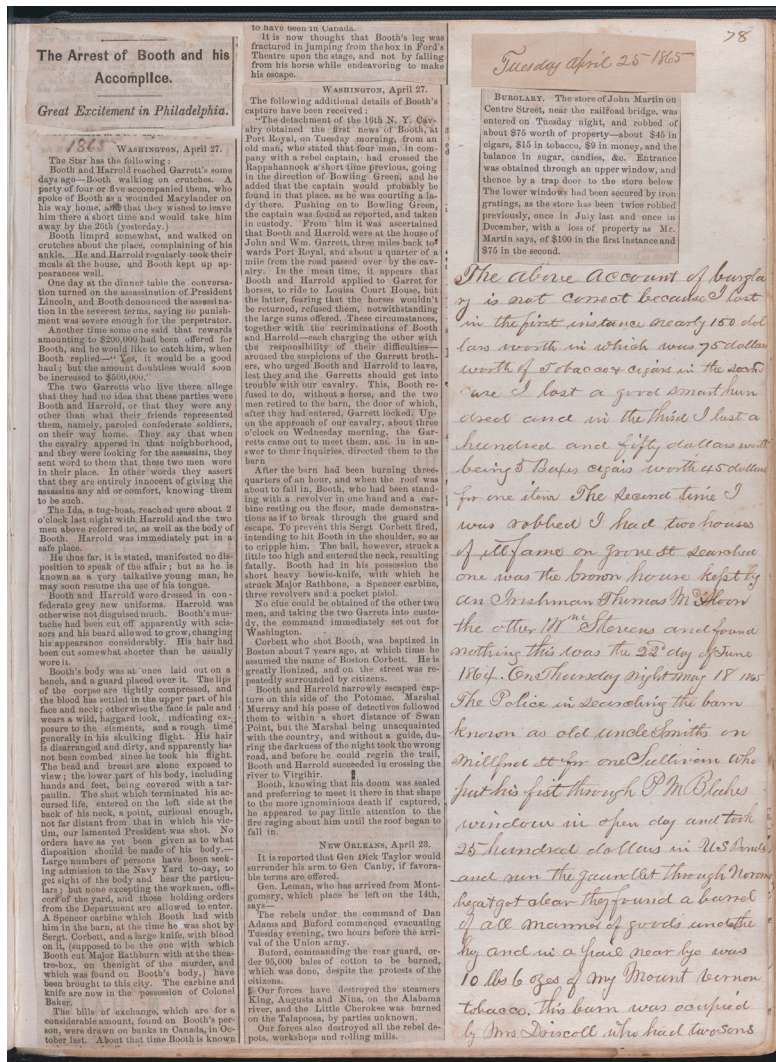 The Arrest of Booth and his
Accomplice.
Great Excitement in Philadelphia.
1865
WASHINGTON, April 27.
The Star has the following:
Booth and Harrold reached Garrett's some
days ago—Booth walking on crutches. A
party of four or five accompanied them, who
spoke of Booth as a wounded Marylander on
his way home, and that they wished to leave
him there a short time and would take him
away by the 26th (yesterday.)
Booth limprd somewhat, and walked on
crutches about the place, complaining of his
ankle. He and Harrold regularly took their
meals at the house, and Booth kept up ap-
pearances well.
One day at the dinner table the conversa-
tion turned on the assassination of President
Lincoln, and Booth denounced the assassina-
tion in the severest terms, saying no punish-
ment was severe enough for the perpetrator.
Another time some one said that rewards
amounting to $200,000 had been offered for
Booth, and he would like to catch him, when
Booth replied—"Yes, it would be a good
haul; but the amount doubtless would soon
be increased to $500,000."
The two Garretts who live there allege
that they had no idea that these parties were
Booth and Harrold, or that they were any
other than what their friends represented
them, namely, paroled confederate soldiers,
on their way home. They say that when
the cavalry appered in that neighborhood,
and they were looking for the assassins, they
sent word to them that these two men were
in their place. In other words they assert
that they are entirely innocent of giving the
assassins any aid or comfort, knowing them
to be such.
The Ida, a tug-boat, reached qere about 2
o'clock last night with Harrold and the two
men above referred to, as well as the body of
Booth. Harrold was immediately put in a
safe place.
He thus far, it is stated, manifested no dis-
position to speak of the affair; but as he is
known as a very talkative young man, he
may soon resume the use of his tongue.
Booth and Harrold were dressed in con-
federate grey new uniforms. Harrold was
otherwise not disguised much. Booth's mus-
tache had been cut off apparently with scis-
sors and his beard allowed to grow, changing
his appearance considerably. His hair had
been cut somewhat shorter than he usually
wore it.
Booth's body was at once laid out on a
bench, and a guard placed over it. The lips
of the corpse are tightly compressed, and
the blood has settled in the upper part of his
face and neck; otherwise the face is pale and
wears a wild, haggard look, indicating ex-
posure to the elements, and a rough time
generally in his skulking flight. His hair
is disarranged and dirty, and apparently has
not been combed since he took his flight.
The head and breast are alone exposed to
view; the lower part of his body, including
hands and feet, being covered with a tar-
paulin. The shot which terminated his ac-
cursed life, entered on the left side at the
back of his neck, a point, curious enough,
not far distant from that in which his vic-
tim, our lamented President was shot. No
orders have as yet been given as to what
disposition should be made of his body.—
Large numbers of persons have been seek-
ing admission to the Navy Yard to-day, to
get sight of the body and hear the particu-
lars; but none excepting the workmen, offi-
cers of the yard, and those holding orders
from the Department are allowed to enter.
A Spencer carbine which Booth had with
him in the barn, at the time he was shot by
Sergt. Corbett, and a large knife, with blood
on it, (supposed to be the one with which
Booth cut Major Rathburn with at the thea-
tre-box, on thenight of tho murder, and
which was found on Booth's body,) have
been brought to this city. The carbine and
knife are now in the possession of Colonel
Baker.
The bills of exchange, which are for a
considerable amount, found on Booth's per-
son, were drawn on banks in Canada, in Oc-
tober last. About that time Booth is known
to have been in Canada.
It is now thought that Booth's leg was
fractured in jumping from the box in Ford's
Theatre upon the stage, and not by falling
from his horse while endeavoring to make
his escape.
WASHINGTON, April 27.
The following additional details of Booth's
capture have been received:
"The detachment of the 16th N. Y. Cav-
alry obtained the first news of Booth, at
Port Royal, on Tuesday morning, from an
old man, who stated that four men, in com-
pany with a rebel captain, had crossed the
Rappahannock a short time previous, going
in the direction of Bowling Green, and he
added that the captain would probably be
found in that place, as he was courting a la-
dy there. Pushing on to Bowling Green,
the captain was found as reported, and taken
in custody. From him it was ascertained
that Booth and Harrold were at the house of
John and Wm. Garrett, three miles back to-
wards Port Royal, and about a quarter of a
mile from the road passed over by the cav-
alry. In the mean time, it appears that
Booth and Harrold applied to Garret for
horses, to ride to Louisa Court House, but
the latter, fearing that the horses wouldn't
be returned, refused them, notwithstanding
the large sums offered. These circumstances,
together with the recriminations of Booth
and Harrold—each charging the other with
the responsibility of their difficulties—
aroused the suspicions of the Garrett broth-
ers, who urged Booth and Harrold to leave,
lest they and the Garretts should get into
trouble with our cavalry. This, Booth re-
fused to do, without a horse, and the two
men retired to the barn, the door of which,
after they had entered, Garrett locked. Up-
on the approach of our cavalry, about three
o'clock on Wednesday morning, the Gar-
retts came out to meet them, and in in an-
swer to their inquiries, directed them to the
barn
After the barn had been burning three-
quarters of an hour, and when the roof was
about to fall in, Booth, who had been stand-
ing with a revolver in one hand and a car-
bine resting on the floor, made demonstra-
tions as if to break through the guard and
escape. To prevent this Sergt Corbett fired,
intending to hit Booth in the shoulder, so as
to cripple him. The ball, however, struck a
little too high and entered the neck, resulting
fatally. Booth had in his possession the
short heavy bowie-knife, with which he
struck Major Rathbone, a Spencer carbine,
three revolvers and a pocket pistol.
No clue could be obtained of the other two
men, and taking the two Garetts into custo-
dy, the command immediately set out for
Washington.
Corbett who shot Booth, was baptized in
Boston about 7 years ago, at which time he
assumed the name of Boston Corbett. He is
greatly lionized, and on the street was re-
peatedly surrounded by citizens.
Booth and Harrold narrowly escaped cap-
ture on this side of the Potomac. Marshal
Murrey and his posse of detectives followed
them to within a short distance of Swan
Point, but the Marshal being unacquainted
with the country, and without a guide, du-
ring the darkness of the night took the wrong
road, and before he could regrin the trail,
Booth and Harrold succeeded in crossing the
river to Virgihir.
Booth, knowing that his doom was sealed
and preferring to meet it there in that shape
to the more ignominious death if captured,
he appeared to pay little attention to the
fire raging about him until the roof began to
fall in.
NEW ORLEANS, April 23.
It is reported that Gen Dick Taylor would
surrender his arm to Gen. Canby, if favora-
ble terms are offered.
Gen. Leman, who has arrived from Mont-
gomery, which place he left on the 14th,
says—
The rebels under the command of Dan
Adams and Buford commenced evacuating
Tuesday evening, two hours before the arri-
val of the Union army.
Buford, commanding the rear guard, or-
der 95,000 bales of cotton to be burned,
which was done, despite the protests of the
citizens.
Our forces have destroyed the steamers
King, Augusta and Nina, on the Alabama
river, and the Little Cherokee was burned
on the Talapoosa, by parties unknown.
Our forces also destroyed all the rebel de-
pots, workshops and rolling mills.
78
Tuesday April 25 1865
BURGLARY. The store of John Martin on
Centre Street, near the railroad bridge, was
entered on Tuesday night, and robbed of
about $75 worth of property—about $45 in
cigars, $15 in tobacco, $9 in money, and the
balance in sugar, candies, &c. Entrance
was obtained through an upper window, and
thence by a trap door to the store below
The lower windows had been secured by iron
gratings, as the store has been twice robbed
previously, once in July last and once in
December, with a loss of property as Mr.
Martin says, of $100 in the first instance and
$75 in the second.
The above account of burgla
ry is not correct because I lost
in the first instance nearly 150 dol
lars worth in which was 75 dollars
worth of Tobacco & cigars in the second
case I lost a good smart hun
dred and in the third I lost a
hundred and fifty dollars worth
being 5 Boxes cigars worth 45 dollars
for one item The second time I
was robbed I had two houses
of ill fame on grove st searched
one was the brown house kept by
an Irishman Thomas
the other Stevens and found
nothing this was the 22d day of June
1864. On Thursday night May 18 1865
The Police in searching the barn
known as old uncle Smiths on
Millford st for one Sullivan who
put his fist through P M Blakes
window in open day and took
25 hundred dollars in US Bonds
and run the gauntlet through
he got clear they found a barrel
of all manner of goods under the
hay and in a pail near bye was
10 lbs 6 ozes of my Mount Vernon
tobacco. this barn was occupied
by Mrs Driscoll who had two sons